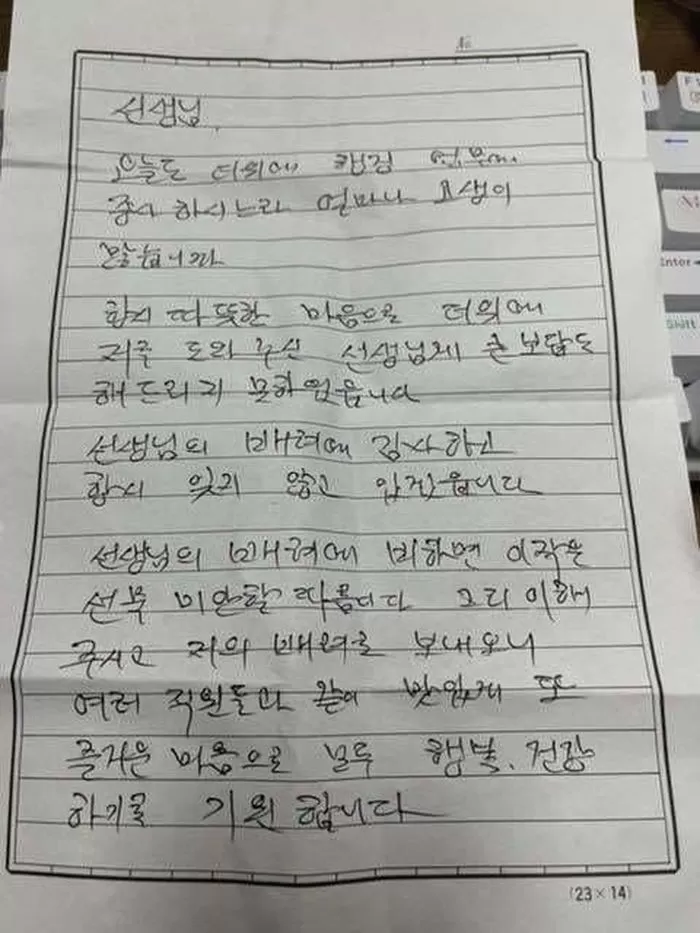 No
선생님,
오늘도 더위에 행정 업무에
종사 하시느라 얼마나 고생이
많습니까
항시 따뜻한 마음으로 더위에
저를 도와 주신 선생님께 큰 보답도
해 드리지 못하였읍니다
선생님의 배려에 감사하고
항시 잊지 않고 있겠읍니다
선생님의 배려에 비하면 이 작은
선물 미안할 따름이다 그리 이해
주시고 저의 배려로 보내오니
여러 직원들과 같이 맛있게 또
즐거운 마음으로 모두 행복, 건강
하기를 기원 합니다
(23×14)
Enter
Shift